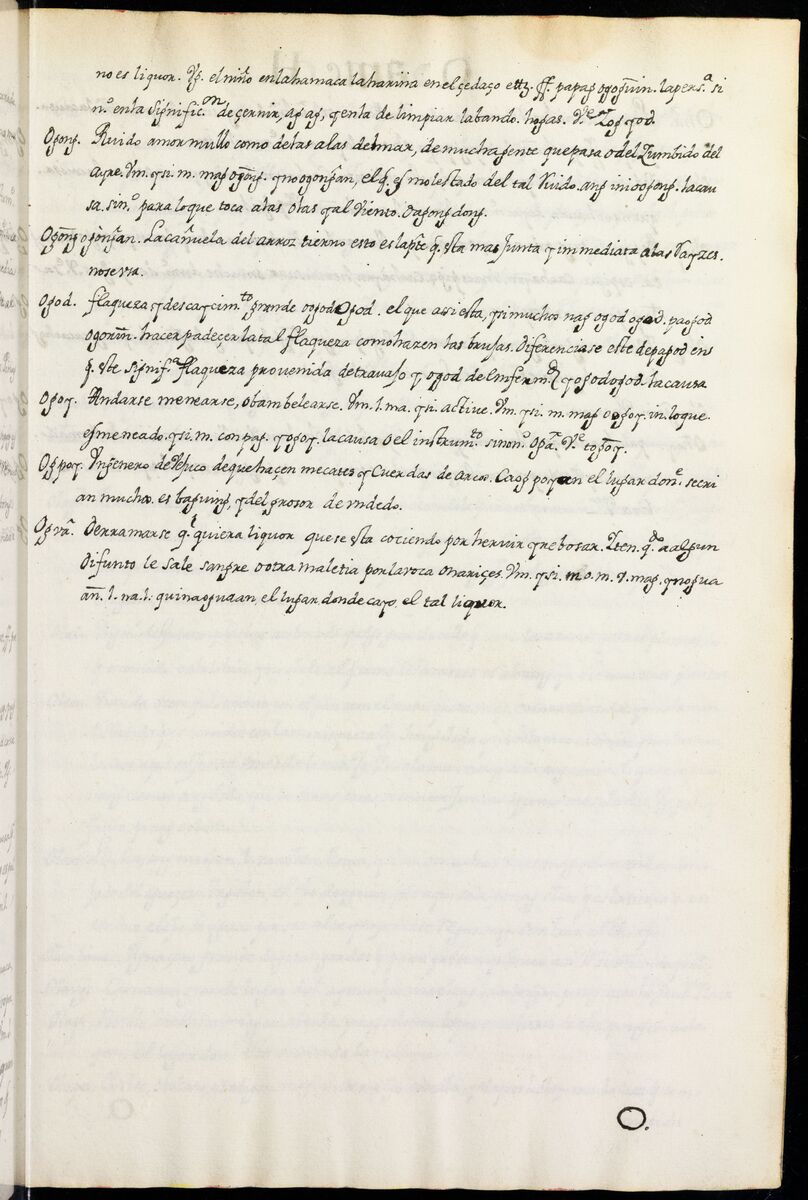 no es liquor. Vg. el niño en la hamaca la harina en el çedaço ettz. ff. papag ogoguin. la pers.ª si
n.º en la signific.on de çernir, agag, y en la de limpiar labando. hogas. Ve. Zog y od.
Ogong. Ruido a mormullo como de las alas del mar, de mucha gente que pasa o del Zumbido del
ayre. Vm. y si. m. mag ogong. y no ogongan, el q. es molestado del tal Ruido. ang ini ogong. la cau
sa. sin.º para lo que toca a las olas y al Viento. dagong dong.
Ogong ogongan. La cañuela del arroz tierno esto es la pte q. esta mas Junta y immediata a las Rayzes.
nose usa.
Ogod. flaqueza y descaycim.to grande ogod ogod. el que asi esta, y si muchos nag ogod ogod. pag od
ogorun. hacer padeçer la tal flaqueza como hazen las brujas. Diferenciase este de pagod en s
q. este signif.ª flaqueza provenida de travajo y ogod de Enferm.d y ogod ogod. la causa.
Ogoy. Andarse menearse, o bambelearse. Vm. l. ma. y si. active. Vm. y si. m. mag ogoy. in. lo que.
es meneado. y si. m. con pag. y ogoy. la causa o el instrum.to sinon.º oga. Ve togoy.
Ogpoy. Un genero de Vejuco de que haçen mecates y Cuerdas de arcos. Caogpoyan el lugar don.e se cri
an muchos. es bagung, y del grosor de un dedo.
Ogva. Derramarse q.l quiera liquor que se esta cociendo por hervir y rebosar. Iten. q.do a algun
difunto le sale sangre o otra maletia por la voca o nariçes. Vm. y si. m. o. m. y. mag. y nogua
an. l. na. l. quinaoguaan, el lugar donde cayo el tal liquor.
O.